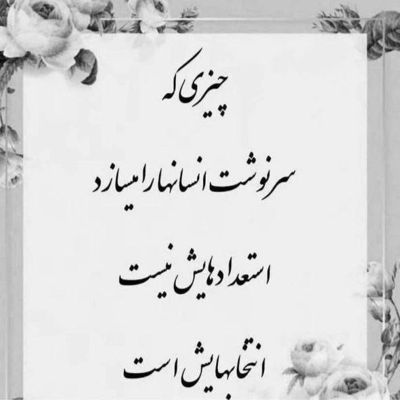 چیزی که
سرنوشت انسانها را میسازد
استعدادهایش نیست
انتخابهایش است